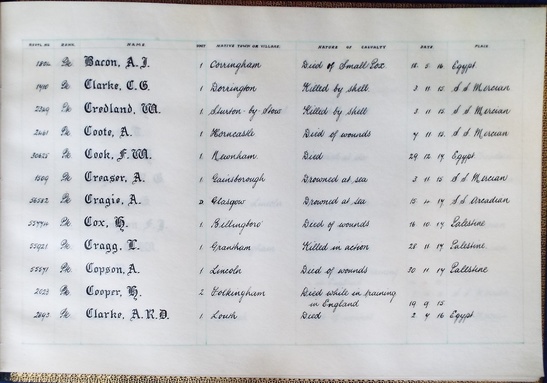 REGTL. NO RANK. NAME. UNIT NATIVE TOWN OR VILLAGE. NATURE OF CASUALTY DATE PLACE
Pte Bacon, A. J. 1 Corringham Died of Small Pox 18. 5. 16 Egypt
Pte Clarke, C. G. 1 Dorrington Killed by shell 3 11 15 S S Mercian
Pte Credland, W. 1 Sturton-by-Stow Killed by shell 3 11 15 S S Mercian
Pte Coote, A. 1 Horncastle Died of wounds 7 11 15 S S Mercian
30625 Pte Cook, F. W. 1 Newnham Died 29 12 17 Egypt
1509 Pte Creaser, A. 1 Gainsborough Drowned at sea 3 11 15 S S Mercian
Pte Cragie, A. D Glasgow Drowned at sea 15 4 17 S S Arcadian
Pte Cox, H. 1 Billingboro Died of wounds 16 10 17 Palestine
55921 Pte Cragg, L. 1 Grantham Killed in action 28 11 17 Palestine
55571 Pte Copson, A. 1 Lincoln Died of wounds 30 11 17 Palestine
Pte Cooper, H. 2 Folkingham Died while in training
in England 19 9 15
Pte Clarke, A. R. D. 1 Louth Died 2 4 16 Egypt